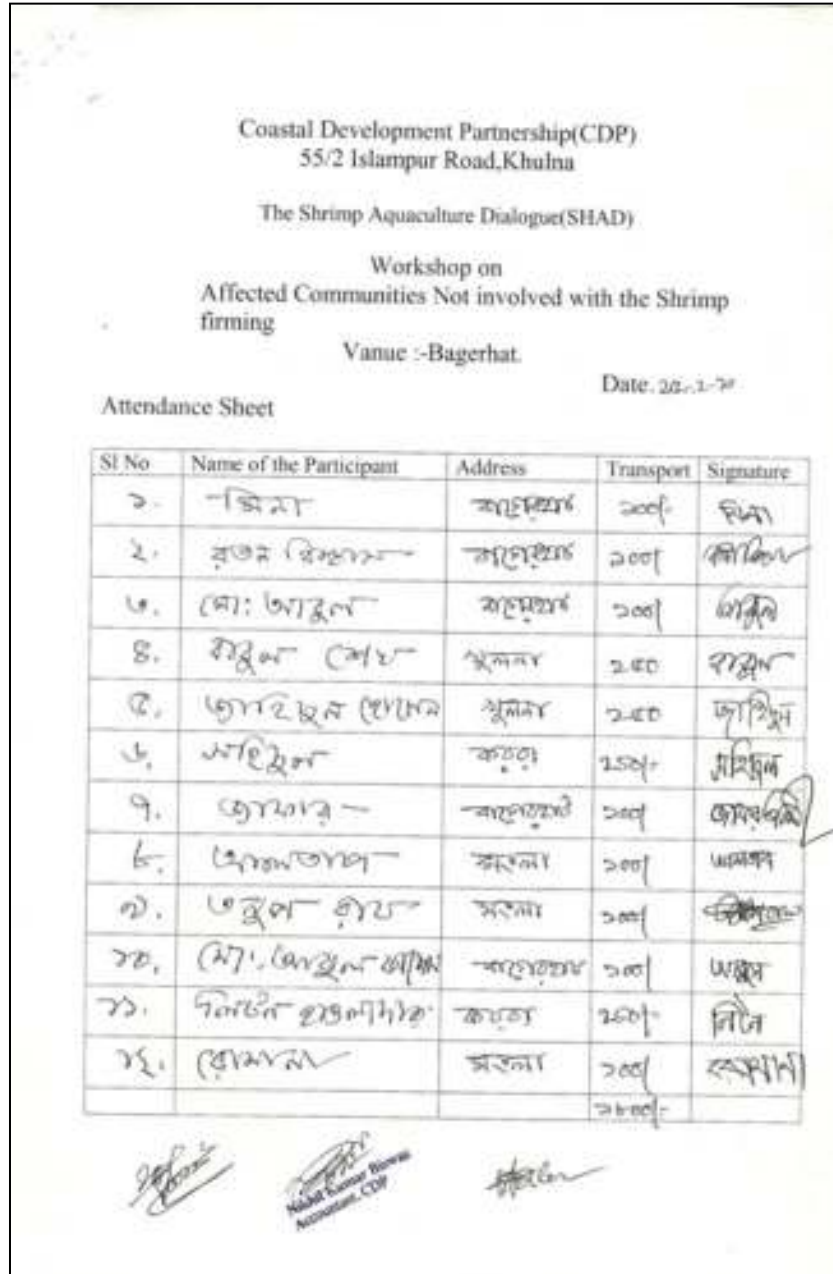 Coastal Development Partnership(CDP)
55/2 Islampur Road,Khulna
The Shrimp Aquaculture Dialogue(SHAD)
Workshop on
Affected Communities Not involved with the Shrimp
firming
Vanue :-Bagerhat.
Date.
Attendance Sheet
Sl No Name of the Participant Address Transport Signature
১. বাগেরহাট ১০০/-
২. রতন বিশ্বাস বাগেরহাট ১০০/
৩. মো: আবুল বাগেরহাট ১০০/ আবুল
৪. বাবুল শেখ খুলনা ২৫০ বাবুল
৫. জাহিদুল হোসেন খুলনা ২৫০ জাহিদুল
৬. সহিদুল কয়রা ২৫০/- সহিদুল
৭. জাফার বাগেরহাট ১০০/
৮. আলতাপ মংলা ১০০/
৯. রায় মংলা ১০০/
১০. মো: আবুল বাগেরহাট ১০০/
১১. হাওলাদার কয়রা ২৫০/-
১২. রোমানা মংলা ১০০/ রোমানা
১৮০০/-
Nikhil Kumar Biswas
Accountant, CDP